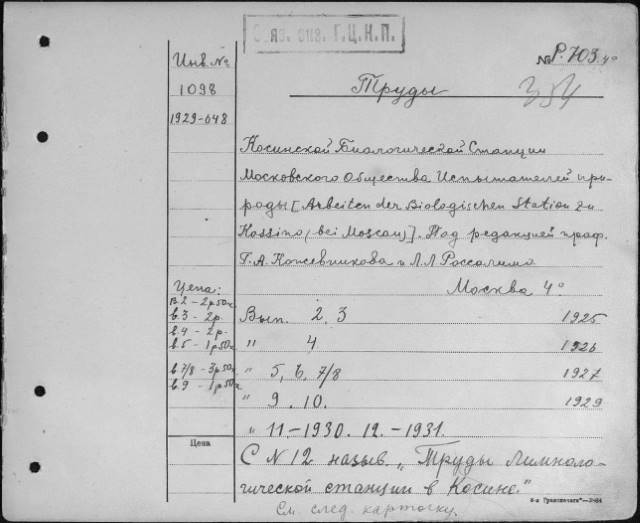 Обяз. экз. Г.Ц.К.П.
№ Р.703.4°
354
Инв №
1098
1929-648
Труды
Косинской Биологической Станции
Московского Общества Испытателей при-
роды [Arbeiten der Biologischen Station zu
Kossino (bei Moscau)]. Под редакцией проф.
Г.А. Кожевникова и Л.Л. Россолимо
Москва 4°
Цена:
в.2 - 2р50к
в.3 - 2р.
в.4 - 2р.
в.5 - 1р50к
в 7/8 - 3р50к
в.9 - 1р50к
Вып. 2, 3 1925
" 4 1926
" 5, 6, 7/8 1927
" 9. 10. 1929
" 11.-1930. 12.-1931.
Цена
С N 12 назыв. „Труды Лимноло-
гической станции в Косине."
См. след. карточку.